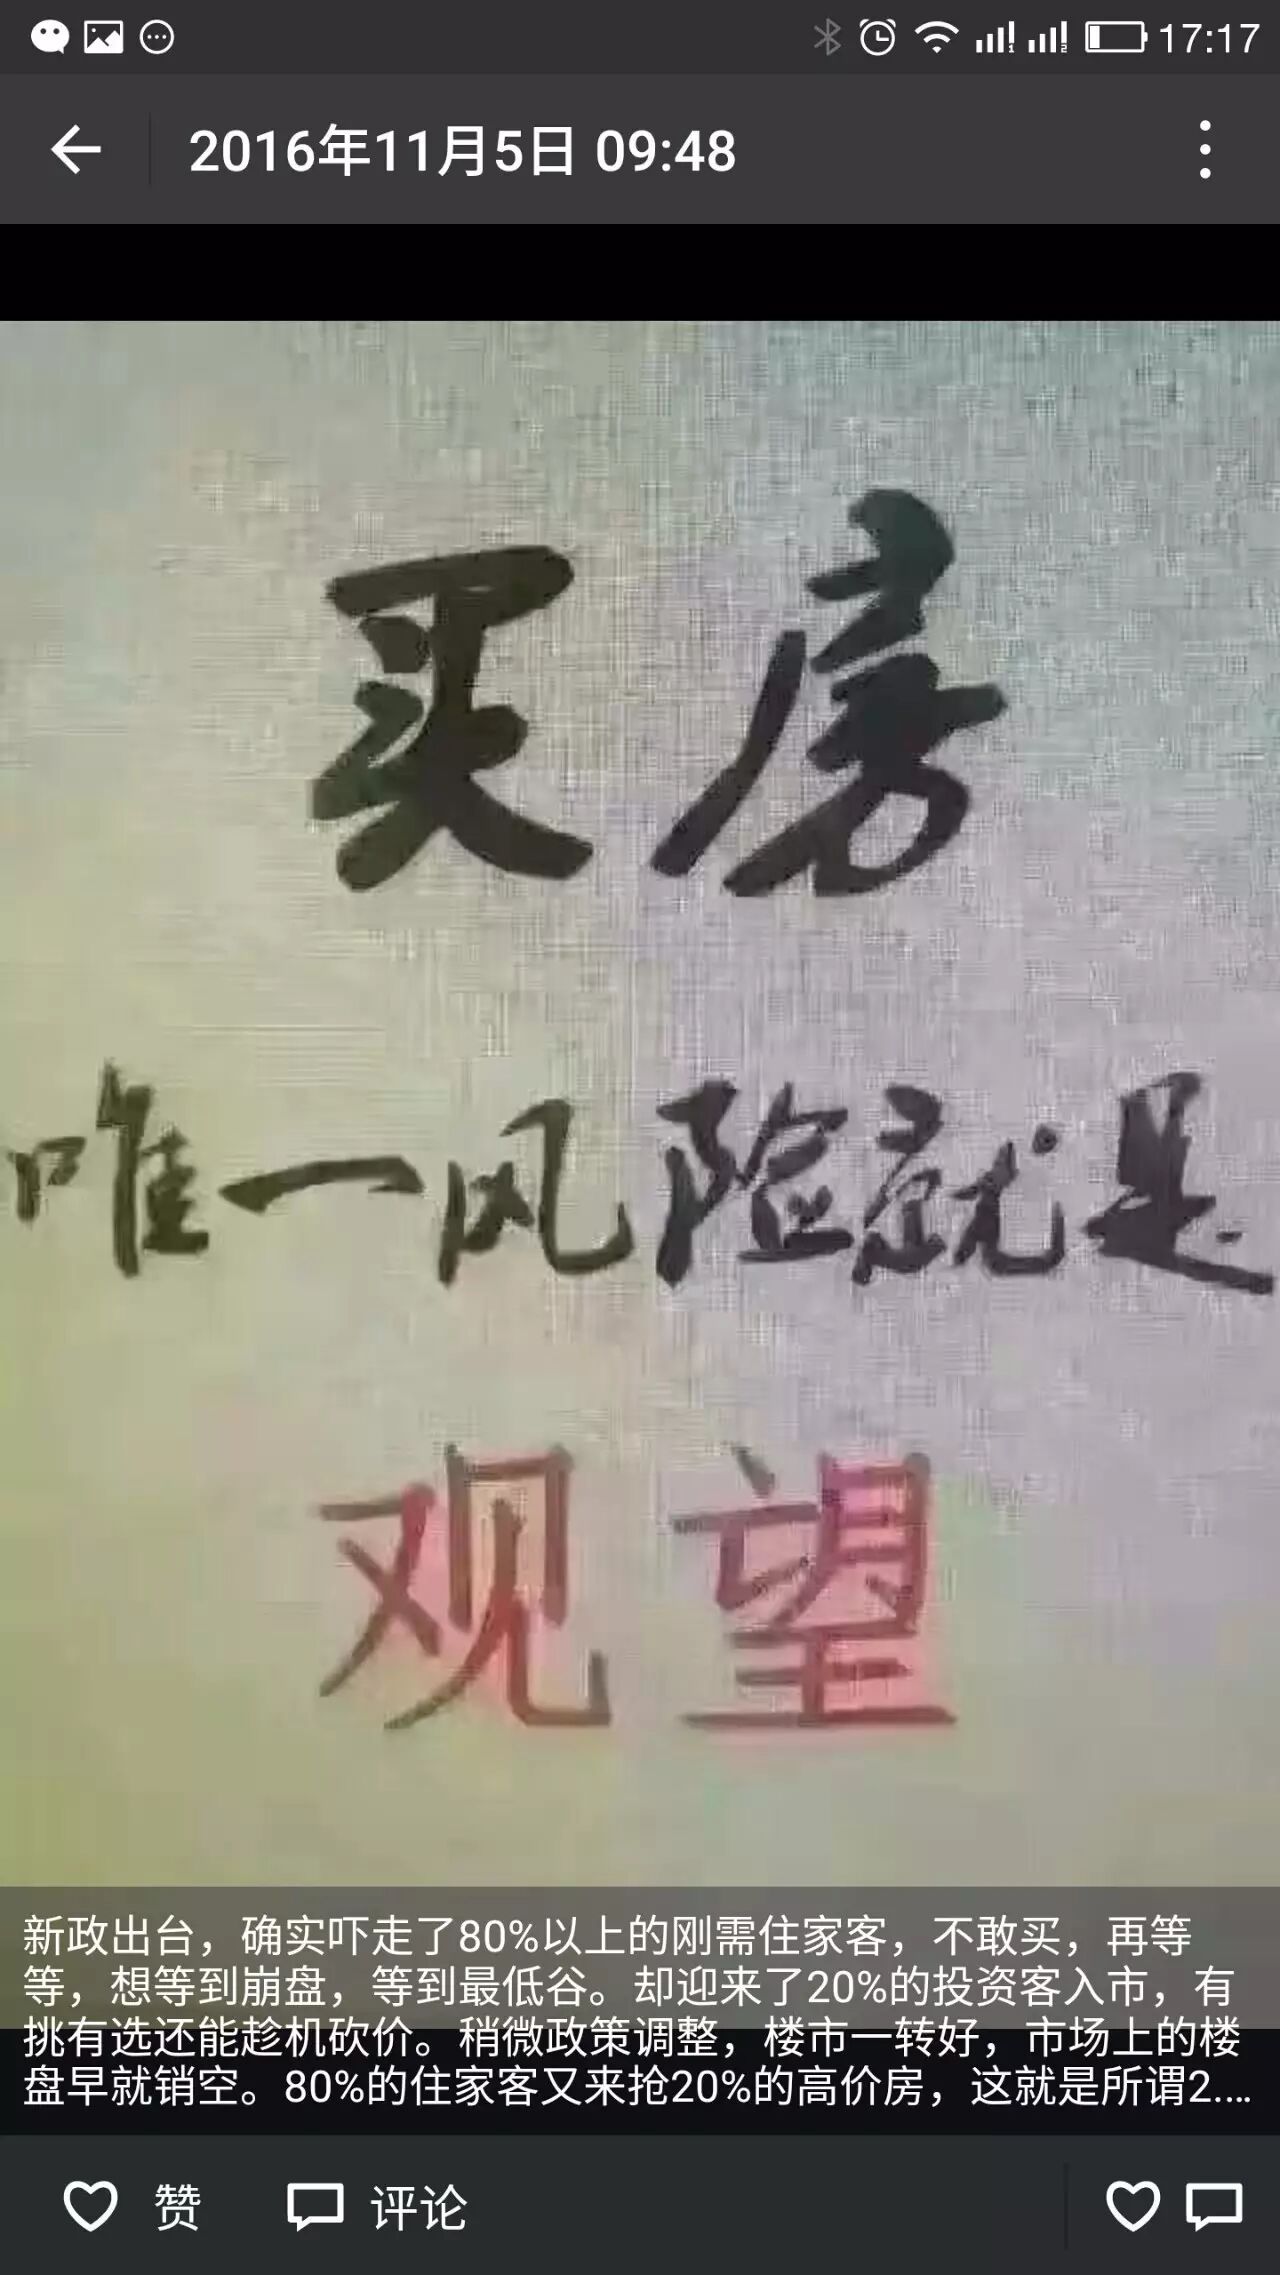 17:17
2016年11月5日 09:48
买房
唯一风险就是
观望
新政出台，确实吓走了80%以上的刚需住家客，不敢买，再等
等，想等到崩盘，等到最低谷。却迎来了20%的投资客入市，有
挑有选还能趁机砍价。稍微政策调整，楼市一转好，市场上的楼
盘早就销空。80%的住家客又来抢20%的高价房，这就是所谓2....
赞 评论